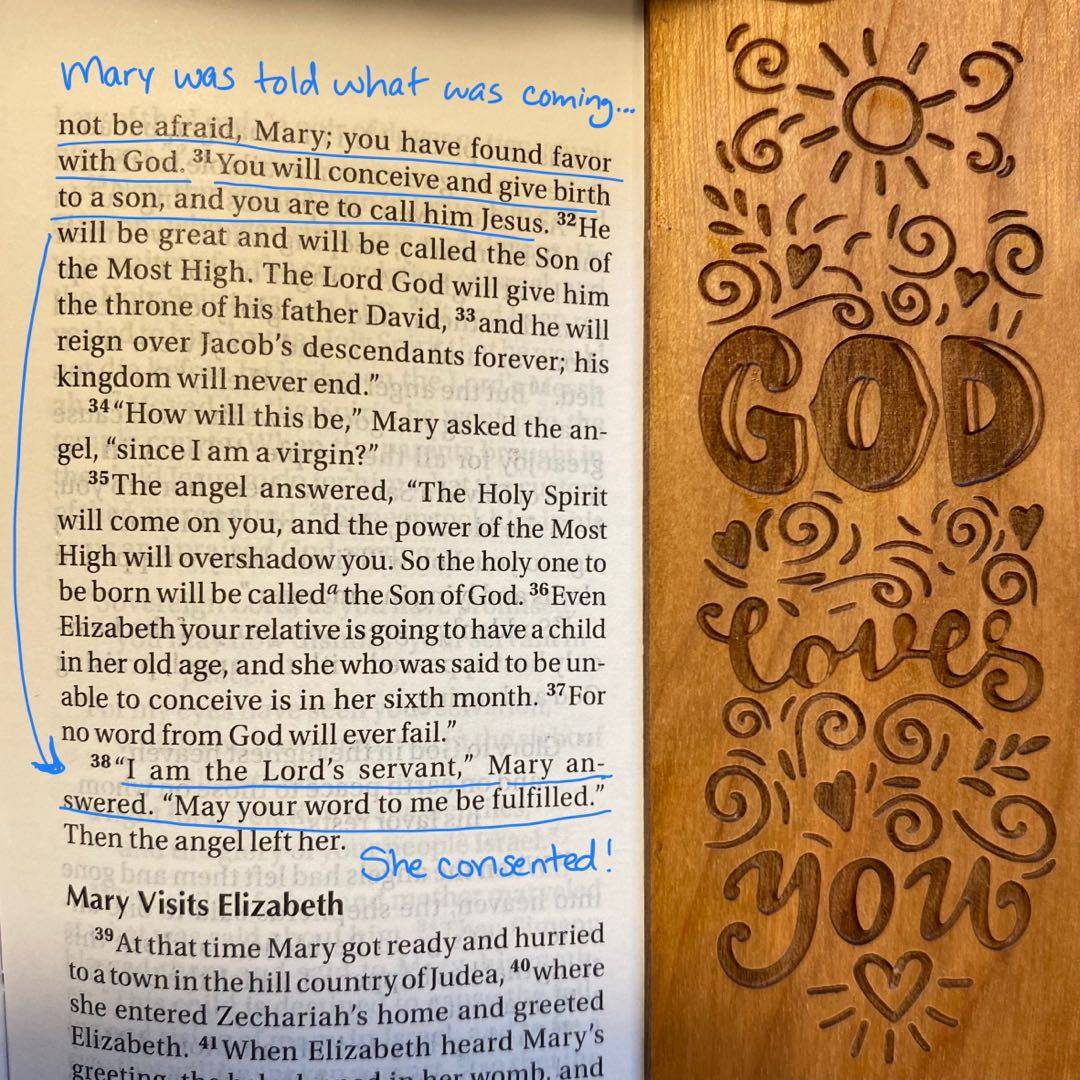 Mary was told what was coming...
not be afraid, Mary; you have found favor
with God. 31You will conceive and give birth
to a son, and you are to call him Jesus. 32He
will be great and will be called the Son of
the Most High. The Lord God will give him
the throne of his father David, 33and he will
reign over Jacob's descendants forever; his
kingdom will never end."
34"How will this be," Mary asked the an-
gel, "since I am a virgin?"
35The angel answered, "The Holy Spirit
will come on you, and the power of the Most
High will overshadow you. So the holy one to
be born will be calleda the Son of God. 36Even
Elizabeth your relative is going to have a child
in her old age, and she who was said to be un-
able to conceive is in her sixth month. 37For
no word from God will ever fail."
38"I am the Lord's servant," Mary an-
swered. "May your word to me be fulfilled."
Then the angel left her.
She consented!
Mary Visits Elizabeth
39At that time Mary got ready and hurried
to a town in the hill country of Judea, 40where
she entered Zechariah's home and greeted
Elizabeth. 41When Elizabeth heard Mary's
in her womb, and
GOD
loves
you